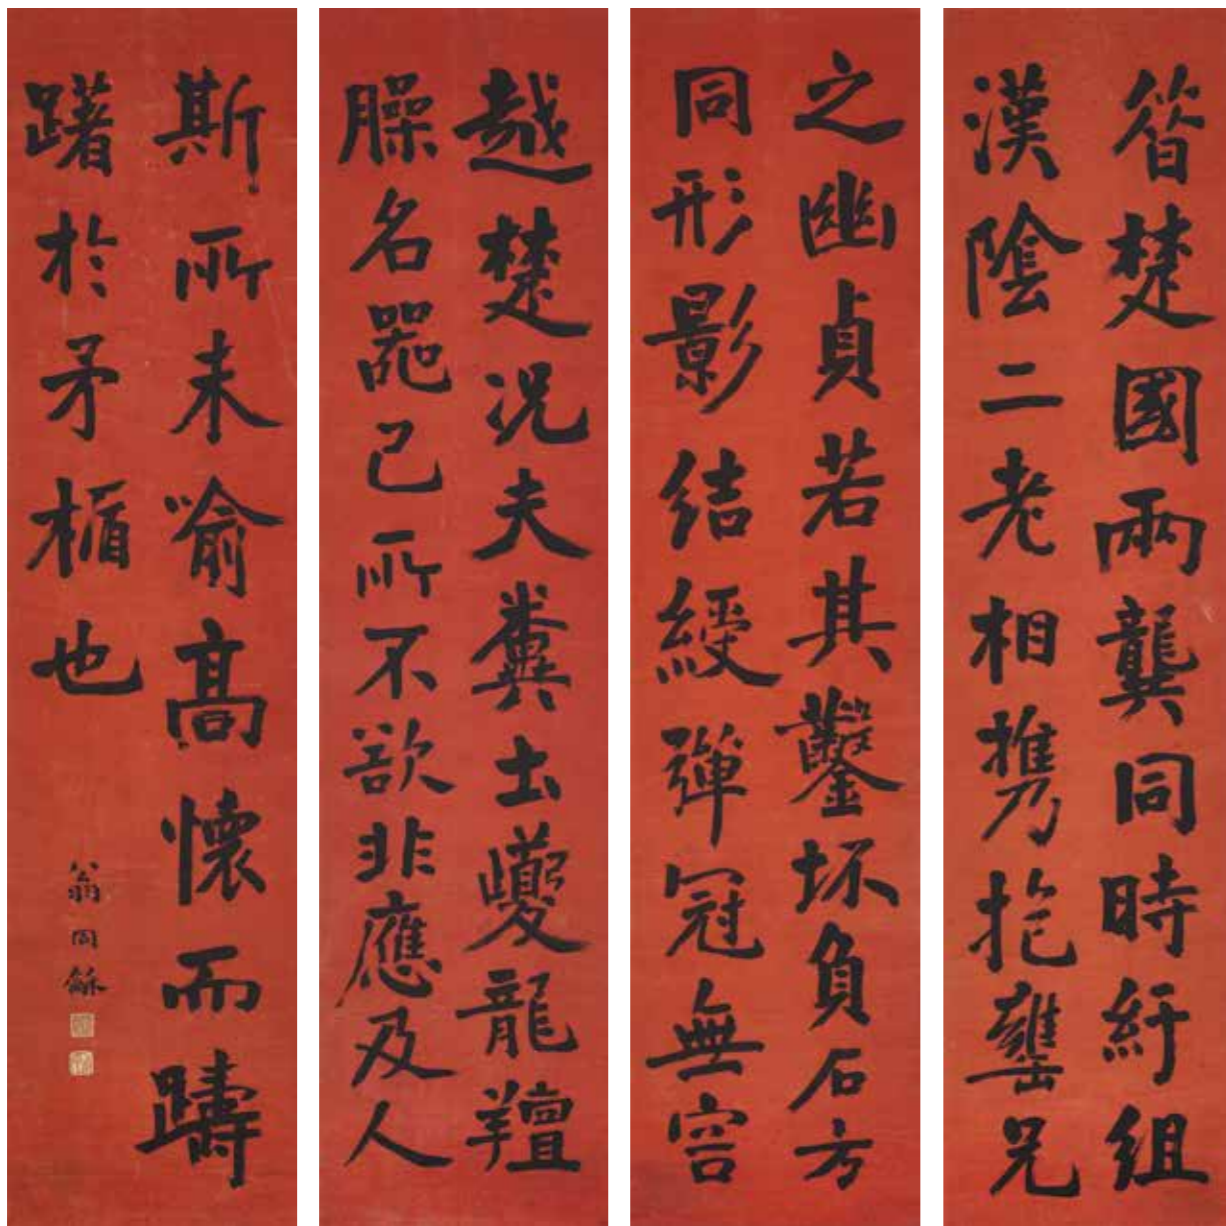 昔楚國兩龔同時紆組
漢陰二老相携抱甕兄
之幽貞若其鑿坏負石方
同形影結綬彈冠無容
越楚況夫糞土夔龍羶
臊名器己所不欲非應及人
斯所未喻高懷而躊
躇於矛楯也
翁同龢